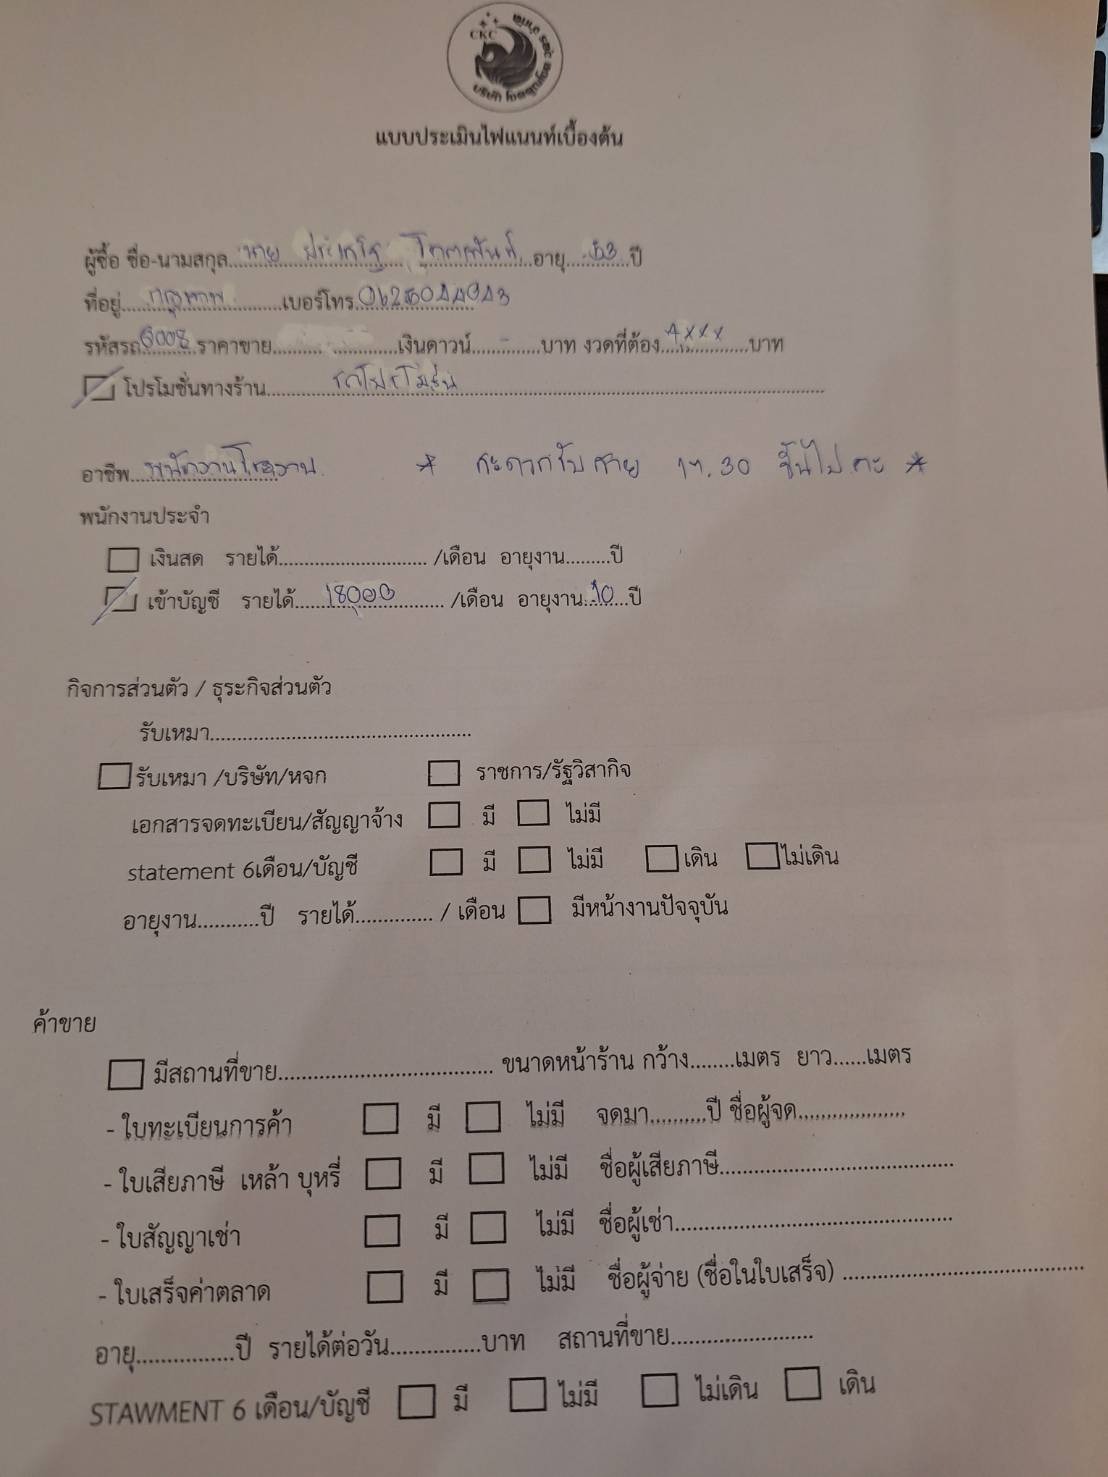 CKC
แบบประเมินไฟแนนท์เบื้องต้น
ผู้ซื้อ ชื่อ-นามสกุล....นาย.... ....อายุ....53....ปี
ที่อยู่....กรุงเทพ....เบอร์โทร....
รหัสรถ....6008....ราคาขาย........เงินดาวน์....-....บาท งวดที่ต้อง....4xxx....บาท
โปรโมชั่นทางร้าน....รถโปรโมชั่น....
อาชีพ....พนักงานโรงงาน.... * สะดวกรับสาย 17.30 ขึ้นไปคะ *
พนักงานประจำ
เงินสด รายได้............................./เดือน อายุงาน.........ปี
เข้าบัญชี รายได้....18000..../เดือน อายุงาน....10....ปี
กิจการส่วนตัว / ธุระกิจส่วนตัว
รับเหมา..................................................
รับเหมา /บริษัท/หจก ราชการ/รัฐวิสากิจ
เอกสารจดทะเบียน/สัญญาจ้าง มี ไม่มี
statement 6เดือน/บัญชี มี ไม่มี เดิน ไม่เดิน
อายุงาน............ปี รายได้............... / เดือน มีหน้างานปัจจุบัน
ค้าขาย
มีสถานที่ขาย..................................... ขนาดหน้าร้าน กว้าง........เมตร ยาว......เมตร
- ใบทะเบียนการค้า มี ไม่มี จดมา..........ปี ชื่อผู้จด...................
- ใบเสียภาษี เหล้า บุหรี่ มี ไม่มี ชื่อผู้เสียภาษี.........................................
- ใบสัญญาเช่า มี ไม่มี ชื่อผู้เช่า................................................
- ใบเสร็จค่าตลาด มี ไม่มี ชื่อผู้จ่าย (ชื่อในใบเสร็จ) ..........................................
อายุ.................ปี รายได้ต่อวัน................บาท สถานที่ขาย.........................
STAWMENT 6 เดือน/บัญชี มี ไม่มี ไม่เดิน เดิน